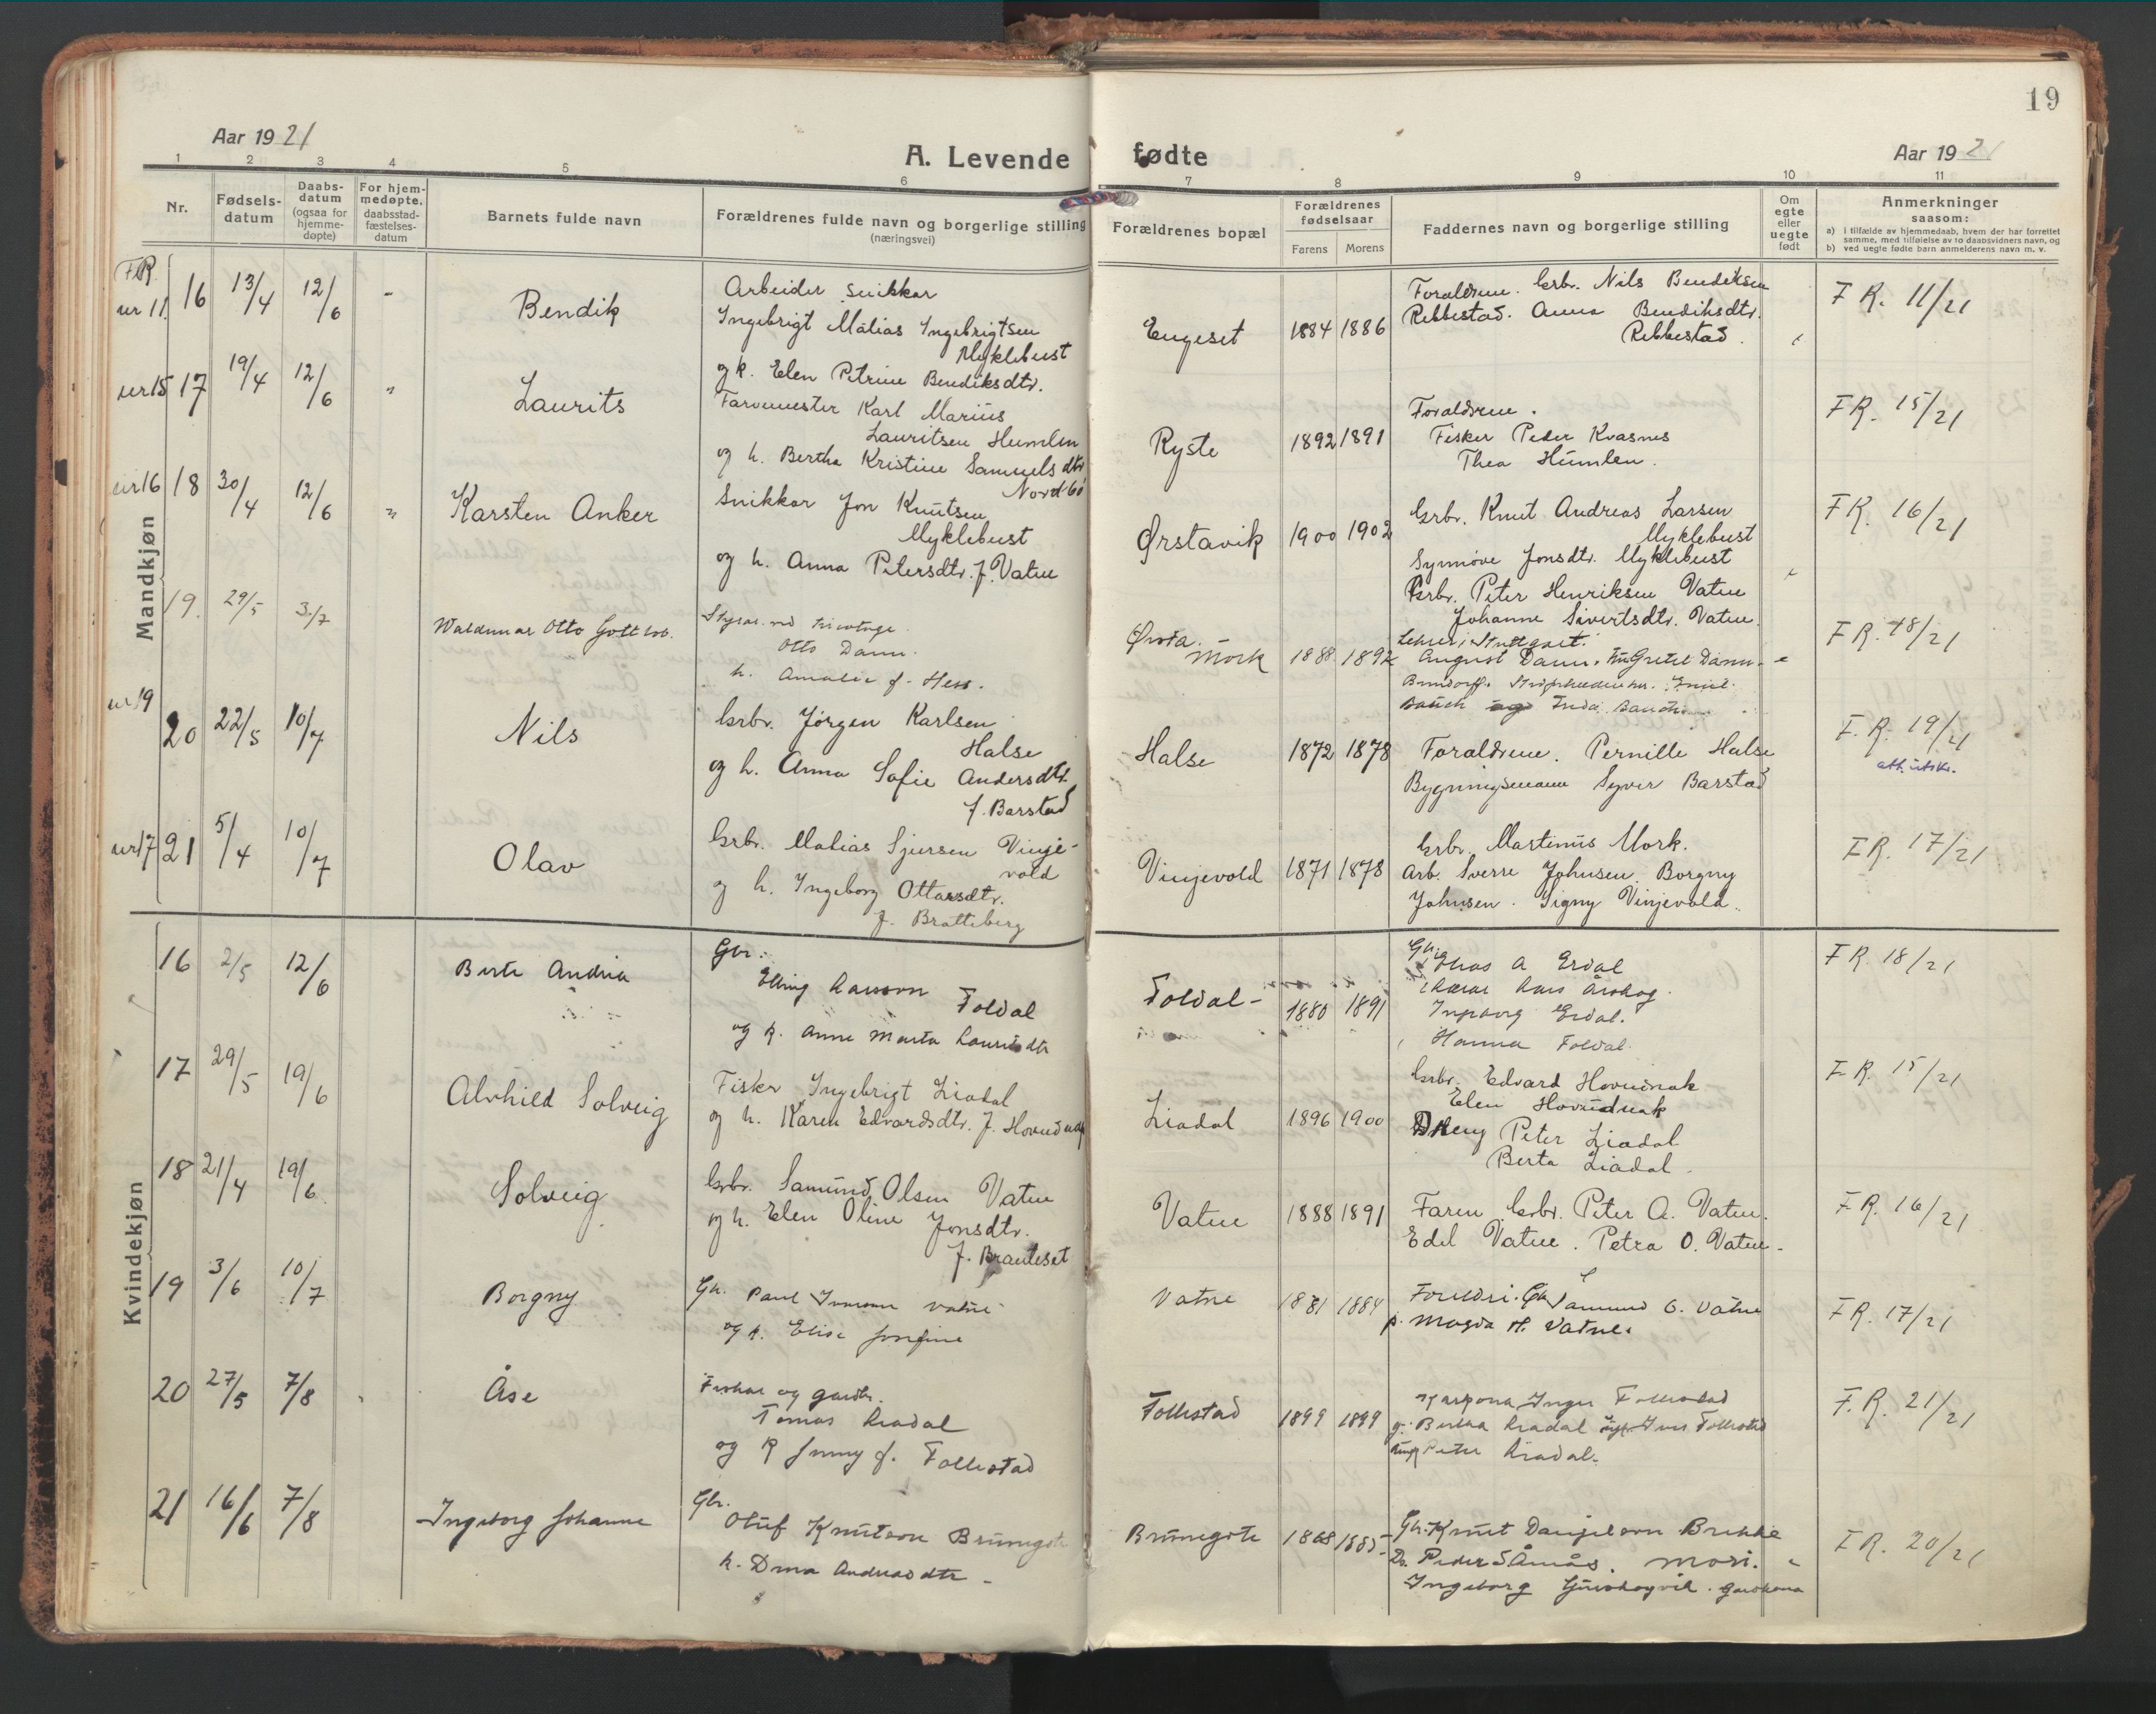 19
Aar 1921
A. Levende fødte
Aar 192
1 2 3 4 5 6 7 8 9 10 11
Nr.
Fødsels-
datum
Daabs-
datum
(ogsaa for
hjemme-
døpte)
For hjem-
medøpte,
daabsstad-
fæstelses-
datum
Barnets fulde navn
Forældrenes fulde navn og borgerlige stilling
(næringsvei)
Forældrenes bopæl
Forældrenes
fødselsaar
Farens Morens
Faddernes navn og borgerlige stilling
Om
egte
eller
uegte
født
Anmerkninger
saasom:
a) i tilfælde av hjemmedaab, hvem der har forrettet
samme, med tilføielse av to daabsvidners navn, og
b) ved uegte fødte barn anmelderens navn m. v.
Mandkjøn
F.R.
nr 11 16 13/4 12/6 - Bendik
Arbeider snikkar
Ingebrigt Matias Ingebrigtsen
Myklebust
og k. Elen Petrine Bendiksdtr.
Engeset 1884 1886
Foraldrene. Grbr. Nils Bendiksen
Rebbestad. Anna Bendiksdtr.
Rebbestad.
F R. 11/21
nr 15 17 19/4 12/6 " Laurits
Farvemester Karl Marius
Lauritsen Humlen
og h. Bertha Kristine Samuelsdtr
Nordbö
Ryste 1892 1891
Foraldrene.
Fisker Peder Kvasnes
Thea Humlen.
F R. 15/21
nr 16 18 30/4 12/6 " Karsten Anker
Snikkar Jon Knutsen
Myklebust
og h. Anna Petersdtr. f. Vatne
Ørstavik 1900 1902
Grbr. Knut Andreas Larsen
Myklebust
Synnøve Jonsdtr. Myklebust
Grbr. Peter Henriksen Vatne
Johanne Sivertsdtr. Vatne.
F R. 16/21
19. 29/5 3/7 Waldemar Otto Gottlob.
Styrar ved tricotage
Otto Dann.
h. Amalie f. Hess.
Ørsta Mork 1888 1892
Lehrer i Stuttgart.
August Dann. Grete Dann
F R. 18/21
nr 19 20 22/5 10/7 Nils
Grbr. Jørgen Karlsen
Halse
og h. Anna Sofie Andersdtr.
f. Barstad
Halse 1872 1878
Foraldrene. Pernille Halse
Bygningsmann Syver Barstad
F. R. 19/21
att. utskr.
nr 17 21 5/4 10/7 Olav
Grbr. Matias Sjursen Vinje-
vold
og h. Ingeborg Ottarsdtr.
f. Bratteberg
Vinjevold 1871 1878
Grbr. Martinus Mork.
Arb. Sverre Johnsen. Borgny
Johnsen. Signy Vinjevold.
F R. 17/21
Kvindekjøn
16 2/5 12/6 Berte Andrea
Gbr.
Elling Larsson Foldal
og k. Anne Marta Lauritsdtr
Foldal - 1880 1891
Elias A Erdal
Lars Årskog.
Ingeborg Erdal.
Hanna Foldal.
F R. 18/21
17 29/5 19/6 Alvhild Solveig
Fisker Ingebrigt Liadal
og h. Karen Edvardsdtr. f. Hovudnak
Liadal 1896 1900
Grbr. Edvard Hovudnak
Elen Hovudnak
Peter Liadal
Berta Liadal.
F. R. 15/21
18 21/4 19/6 Solveig
Grbr. Samund Olsen Vatne
og h. Elen Oline Jonsdtr.
f. Brauteset
Vatne 1888 1891
Faren Grbr. Peter A. Vatne.
Edel Vatne. Petra O. Vatne.
F. R. 16/21
19 3/6 10/7 Borgny
Gbr. Paul Vatne
og k. Elise Josefine
Vatne 1881 1884
Foreldri. Gbr. Samund O. Vatne
p. Magda H. Vatne.
F R. 17/21
20 27/5 7/8 Åse
Fiskar og gardbr.
Tomas Liadal
og K Jenny f. Follestad
Follestad 1899 1899
Inger Follestad
g. Bertha Liadal Iver Follestad
ungk Peter Liadal.
F. R. 21/21
21 16/6 7/8 Ingeborg Johanne
Gbr.
Oluf Knutson Brunegote
k. Dina Andreasdtr -
Brunegote 1868 1885
Gbr. Knut Danjelson Brekke
Peder S Åmås.
Ingeborg
F R. 20/21